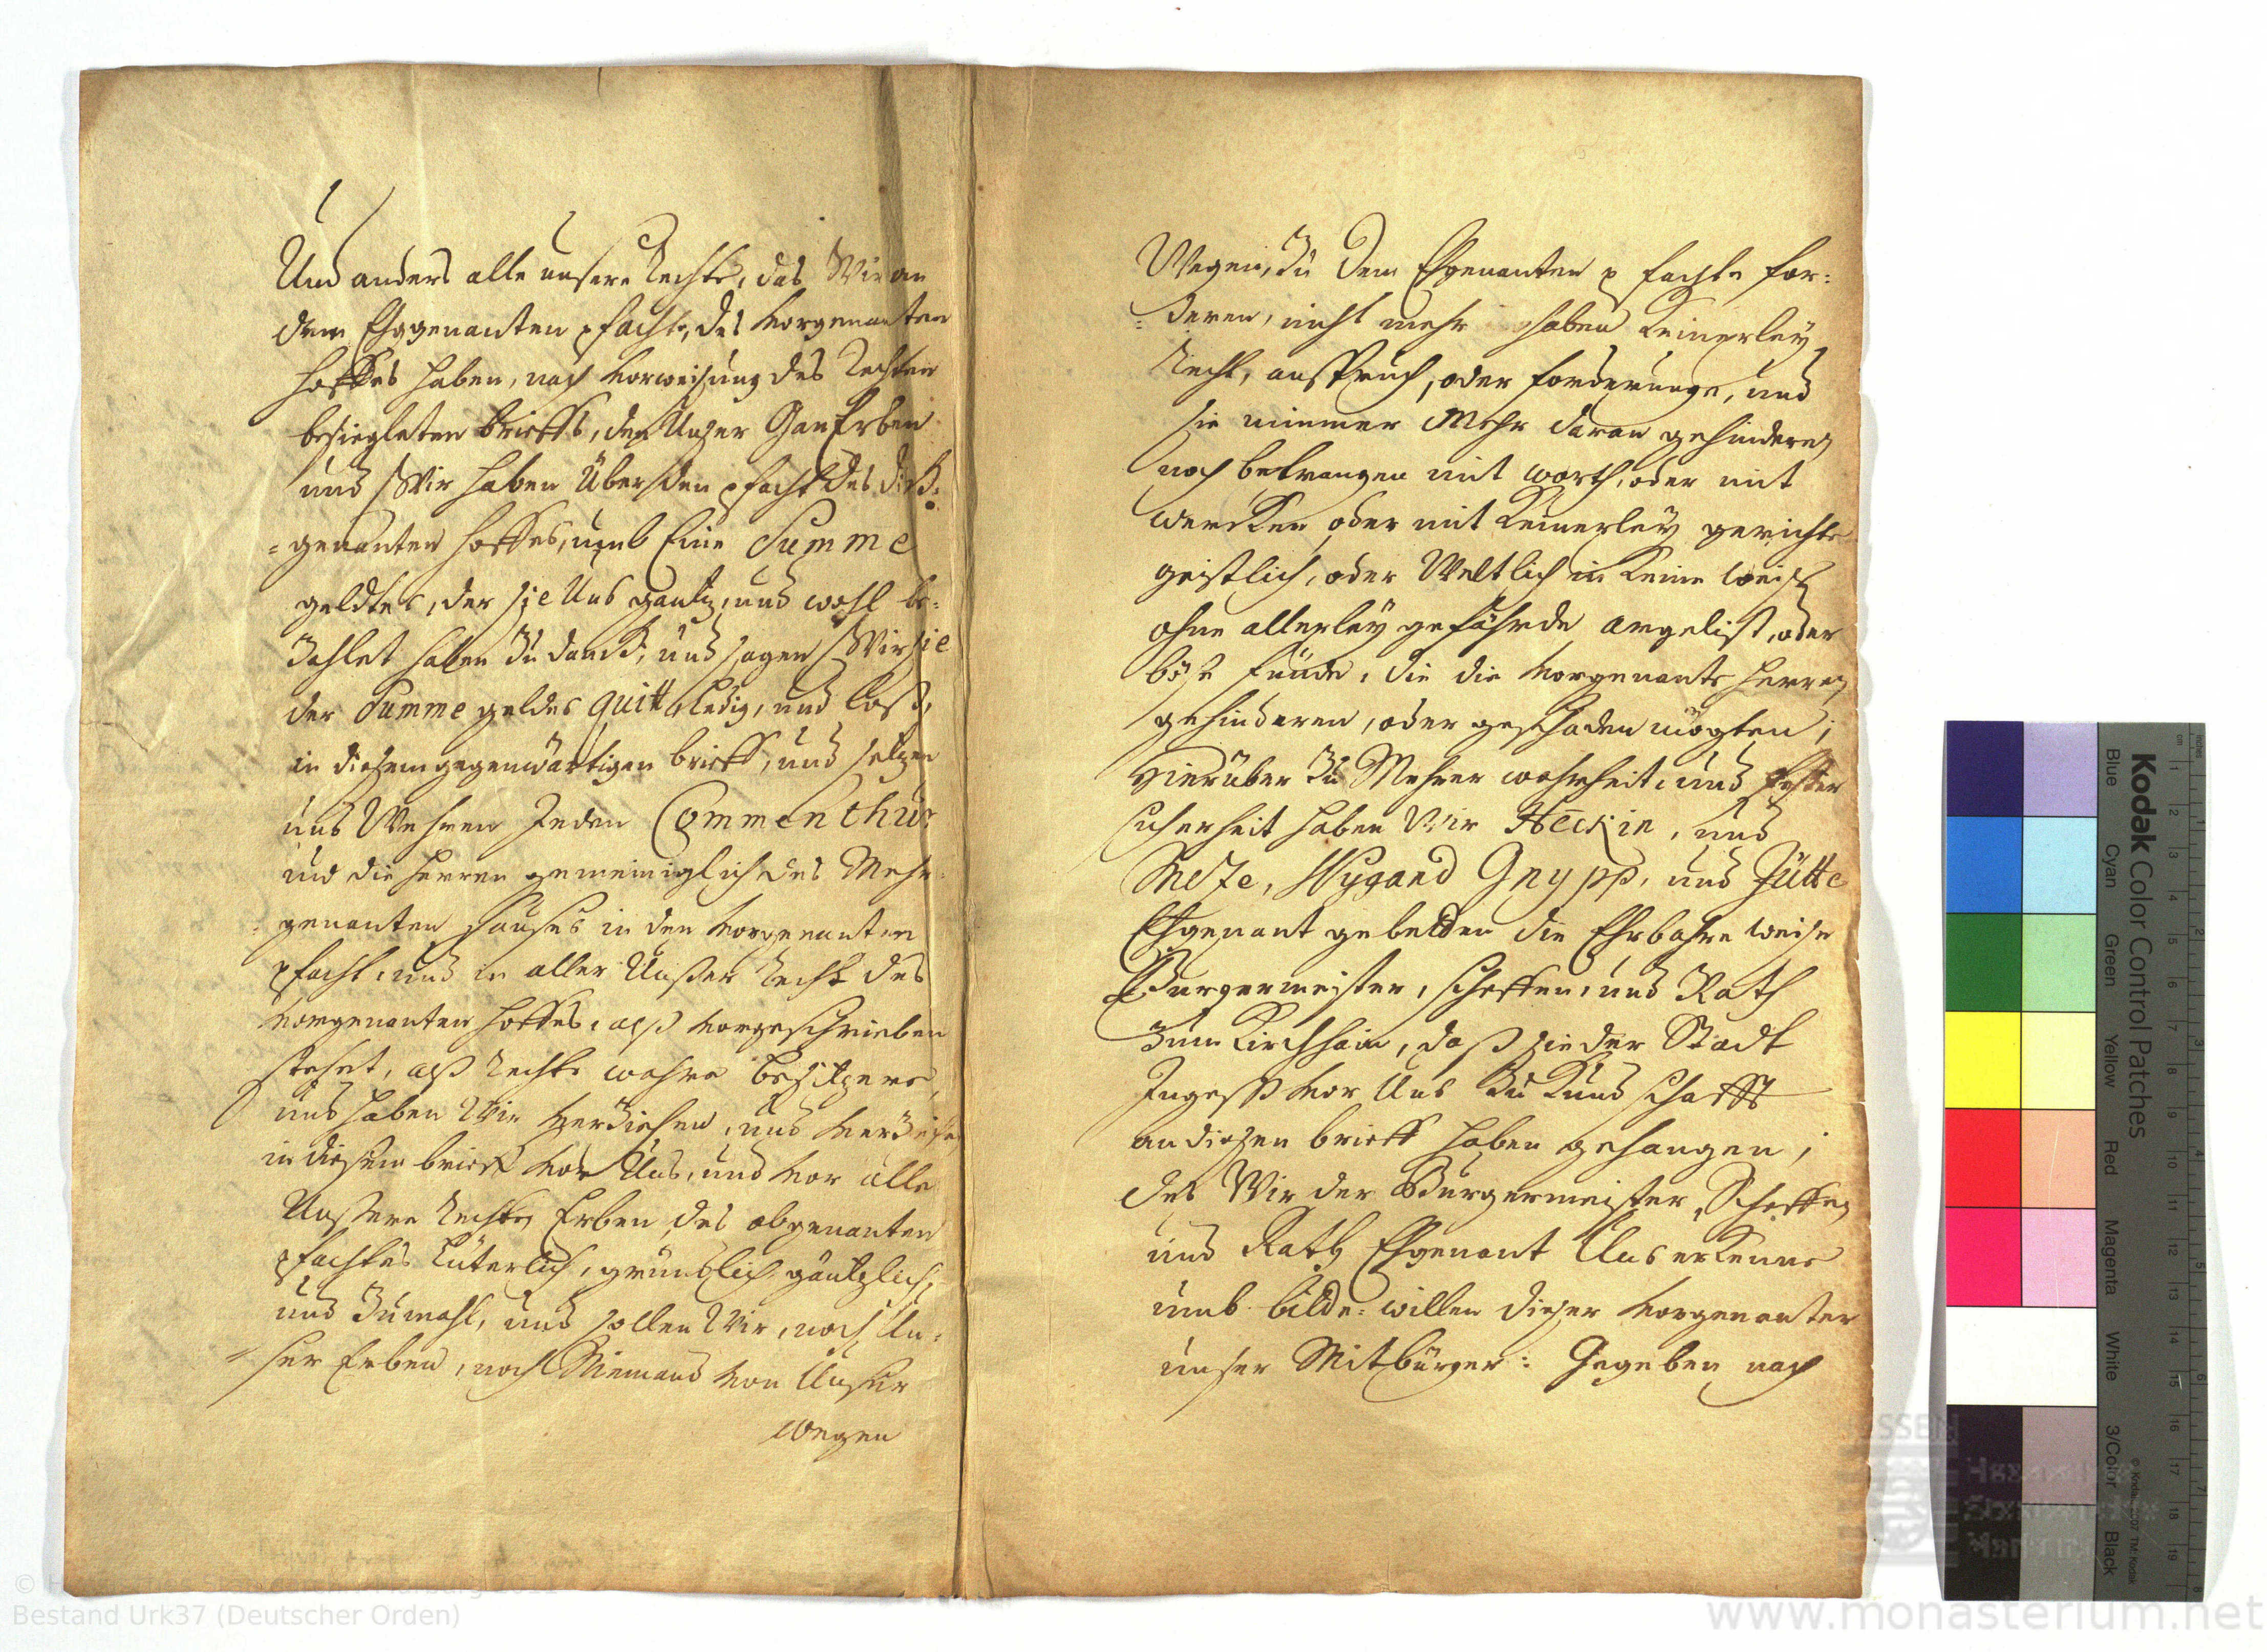 Und anders alle unsere Rechte, das Wir an
dem Ehggenanten pfachte, des vorgenanten
hoffes haben, nach vorweisung des Rechten
besiegleten brieffs, den Unßer GanErben
und Wir haben Über den pfacht des dick:
=genanten hoffes, umb Eine Summe
geldtes, der sie Uns gantz, und wohl be:
zahlet haben zu danck, und sagen Wir sie
der Summe geldes quitt, ledig, und loß,
in dießem gegenwärtigen brieff, und setzen
und Wehren Jeden Commenthur
und die Herren gemeiniglich des Mehr
=genanten Haußes in den vorgenanten
pfacht, und in aller Unßer Recht des
vorgenanten hoffes, alß vorgeschrieben
stehet, alß Rechte wahre besitzere,
und haben Wir verziehen, und verzeihe
in dießem brieff vor Uns, und vor alle
Unßere Rechte Erben des obgenanten
pfachtes Lüterlich, gründlich, gäntzlich,
und zumahl, und sollen Wir, noch Un=
ser Erben, noch Niemand von Unßer
wegen
Wegen, zu dem Ehgenanten pfachte for:
=deren, nicht mehr haben keinerley
Recht, anspruch, oder forderunge, und
sie nimmer Mehr daran gehinderen
noch betrangen mit worth, oder mit
wercken, oder mit keinerley gerichte
geistlich, oder Weltlich in keine weiß
ohne allerley gefährde argelist, oder
böße fünde, die die vorgenante Herren
gehinderen, oder geschaden mögten;
Hierüber zu Mehrer wahrheit, und fester
sicherheit haben Wir Heckin, und
Metze, Wygand Gnypp, und Jütte
Ehgenant gebetten die Ehrbahre weiße
Burgermeister, Scheffen, und Rath
zum Kirchhain, daß sie der Stadt
Ingeß vor Uns zu Kundschafft
an dießen brieff haben gehangen;
des Wir der Burgermeister, Scheffen
und Rath Ehgenant Uns erkenne
umb bitde: willen dießer vorgenanter
unßer Mitbürger: Gegeben nach
Kodak Color Control Patches
Blue Cyan Green Yellow Red Magenta White 3/Color Black
Bestand Urk37 (Deutscher Orden)
www.monasterium.net